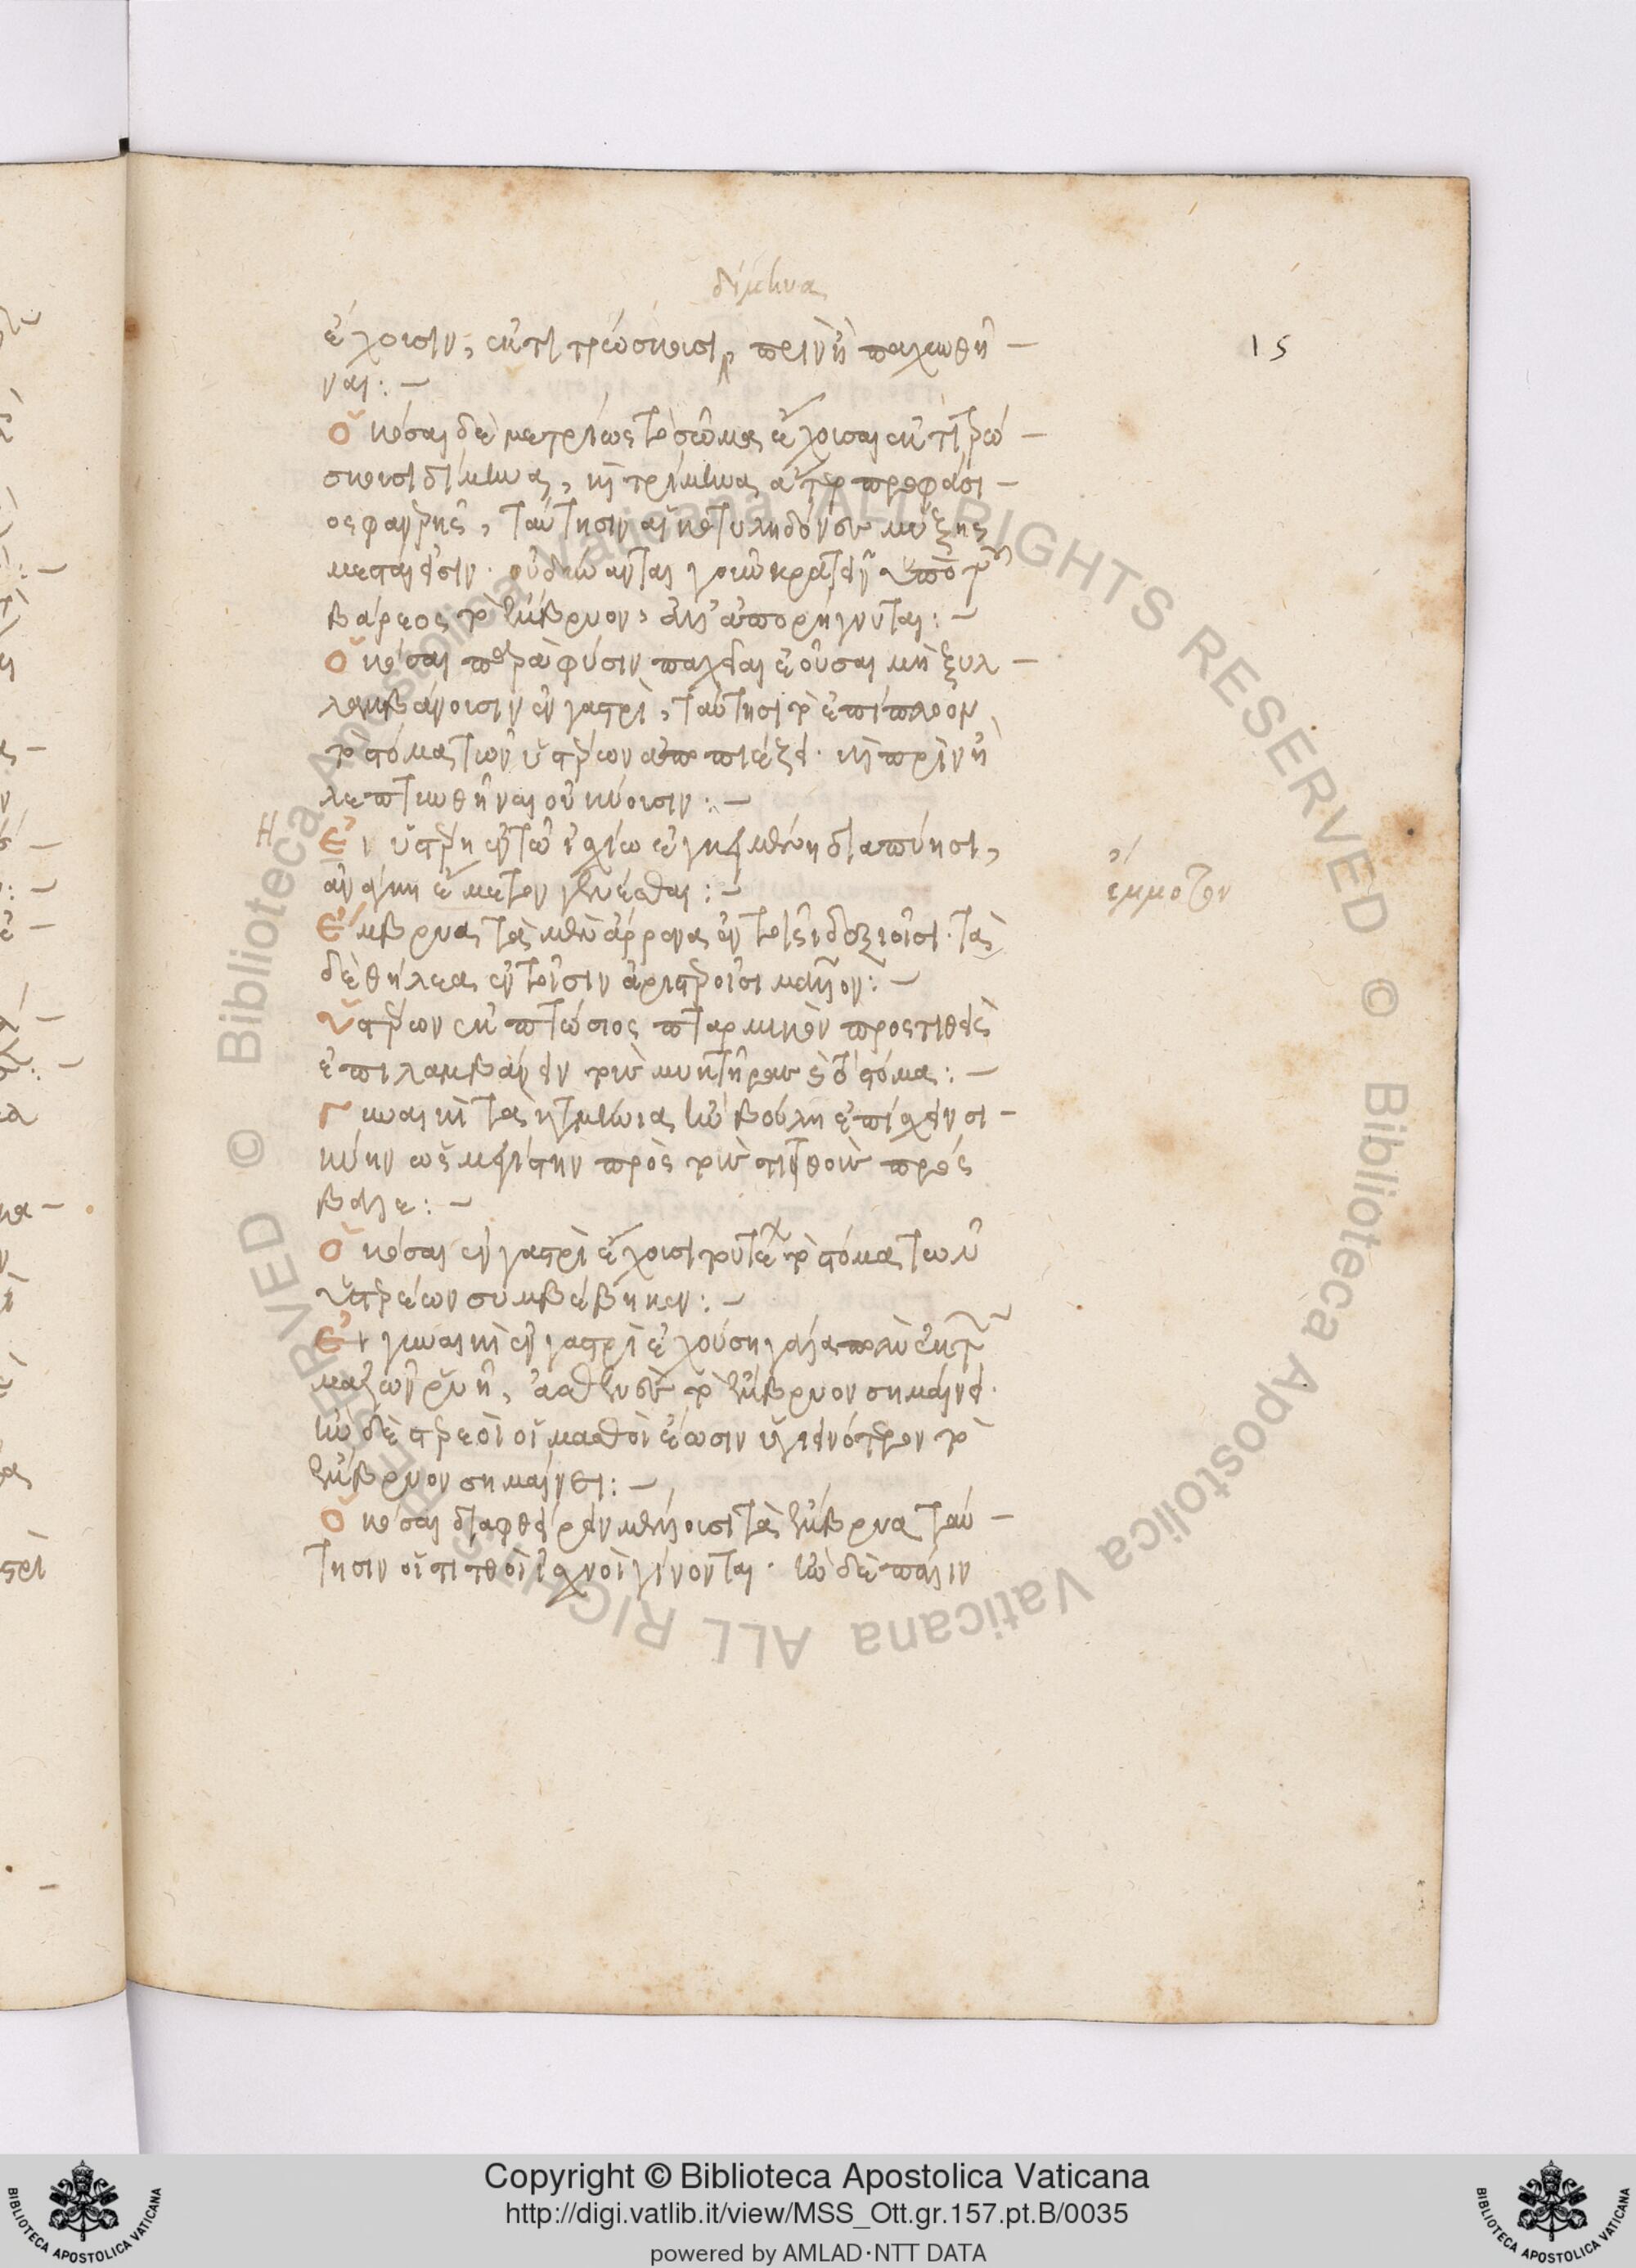 δίμηνα
ἔχουσιν, ἐκτιτρώσκουσι, πρινὴ παχυνθῆ –
ναι : –
15
Ὁκόσαι δὲ μετρίως τὸ σῶμα ἔχουσαι ἐκτιτρώ –
σκουσι δίμηνα, καὶ τρίμηνα ἄτερ προφάσι –
ος φανερῆς, ταύτησιν αἱ κοτυληδόνες μύξης
μεσταί εἰσιν. οὐ δύνανται γοῦν κρατεῖν ὑπὸ τοῦ
βάρεος τὸ ἔμβρυον, ἀλλ' ἀπορρήγνυται : –
Ὁκόσαι παρὰ φύσιν παχεῖαι ἐοῦσαι μὴ ξυλ –
λαμβάνουσιν ἐν γαστρὶ, ταύτησι τὸ ἐπίπλοον
τὸ στόμα τῶν ὑστερέων ἀποπιέζει. καὶ πρὶν ἢ
λεπτυνθῆναι οὐ κύουσιν : –
Η
Εἰ ὑστέρη ἐν τῷ ἰσχίῳ ἐγκειμένη διαπύησι,
ἀνάγκη ἔμμοτον γενέσθαι : –
ἔμμοτον
Ἔμβρυα τὰ μὲν ἄρρενα ἐν τοῖσι δεξιοῖσι. τὰ
δὲ θήλεα ἐν τοῖσιν ἀριστεροῖσι μᾶλλον : –
Ὑστέρων ἐκπτώσιος πταρμικὸν προστιθεὶς
ἐπιλαμβάνειν τοὺς μυκτῆρας καὶ τὸ στόμα : –
Γυναικὶ τὰ καταμήνια ἢν βούλῃ ἐπίσχειν σι –
κύην ὡς μεγίστην πρὸς τοὺς τιτθοὺς πρός
βαλε : –
Ὁκόσαι ἐν γαστρὶ ἔχουσι τουτέων τὸ στόμα τῶν
ὑστερέων συμβέβηκεν : –
Εἰ γυναικὶ ἐν γαστρὶ ἐχούσῃ γάλα πολὺ ἐκ τῶν
μαζῶν ῥυῇ, ἀσθενὲς τὸ ἔμβρυον σημαίνει.
ἢν δὲ στερεοὶ οἱ μασθοὶ ἔωσιν ὑγιεινότερον τὸ
ἔμβρυον σημαίνει : –
Ὁκόσαι διαφθείρειν μέλλουσι τὰ ἔμβρυα ταύ –
τησιν οἱ τιτθοὶ ἰσχνοὶ γίνονται. ἢν δὲ πάλιν
Copyright © Biblioteca Apostolica Vaticana
http://digi.vatlib.it/view/MSS_Ott.gr.157.pt.B/0035
powered by AMLAD·NTT DATA